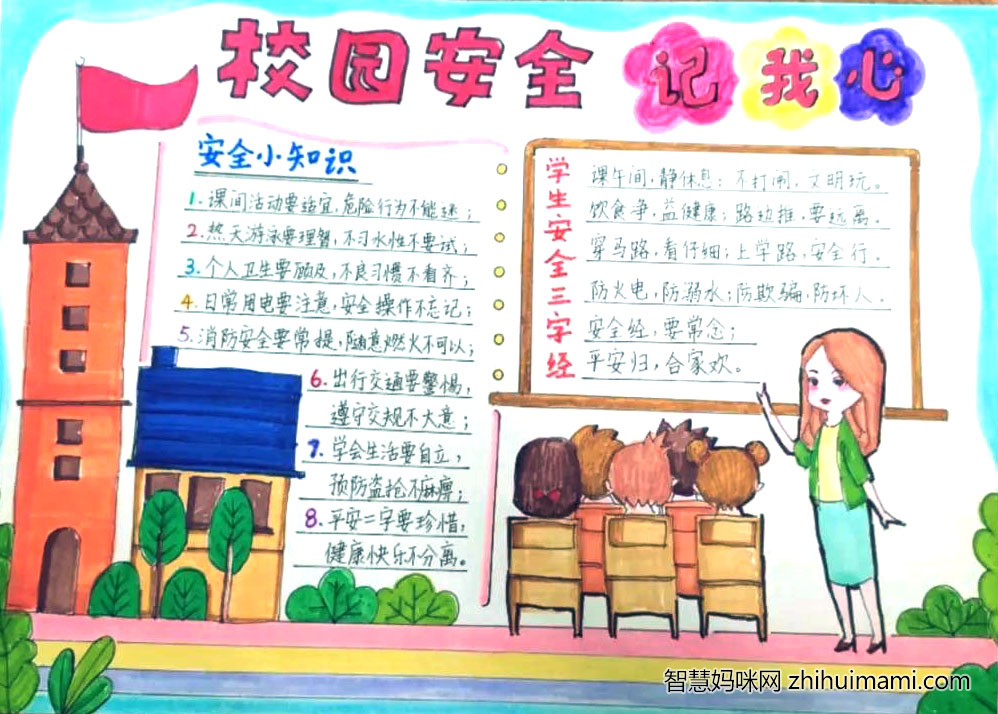 校园安全记我心
安全小知识
1.课间活动要适宜,危险行为不能逑;
2.热天游泳要理智,不习水性不要试;
3.个人卫生要顾及,不良习惯不看齐;
4.日常用电要注意,安全操作不忘记;
5.消防安全要常提,随意燃火不可以;
6.出行交通要警惕,
遵守交规不大意;
7.学会生活要自立,
预防盗抢不麻痹;
8.平安二字要珍惜,
健康快乐不分离。
学生安全三字经
课午间,静休息;不打闹,文明玩。
饮食净,益健康;路边摊,要远离.
穿马路,看仔细;上学路,安全行.
防火电,防弱水;防欺骗,防坏人.
安全经,要常念;
平安归,合家欢。
智慧妈咪网 zhihuimami.com